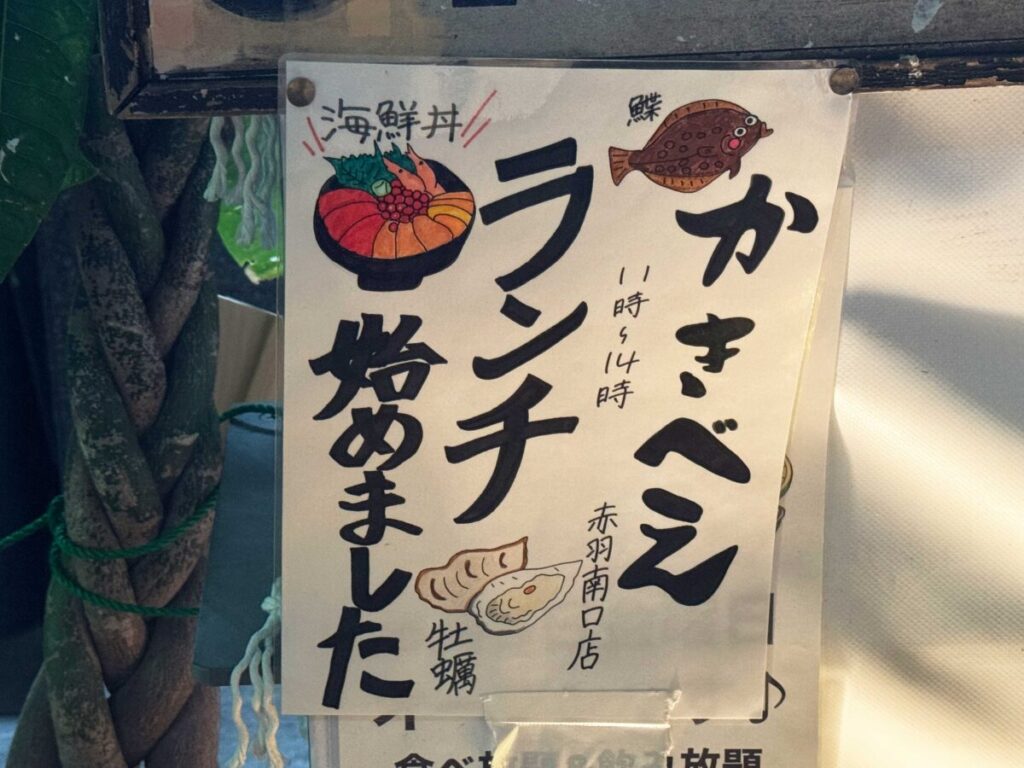 鰈
かきべえ
11時〜14時
赤羽南口店
ランチ
海鮮丼
始めました
牡蠣
食べ放題&飲み放題